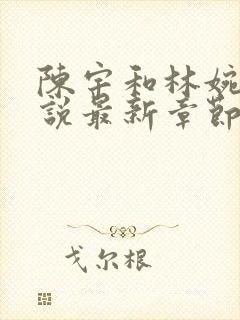 陳宇和林婉
說最新章節
戈尔根